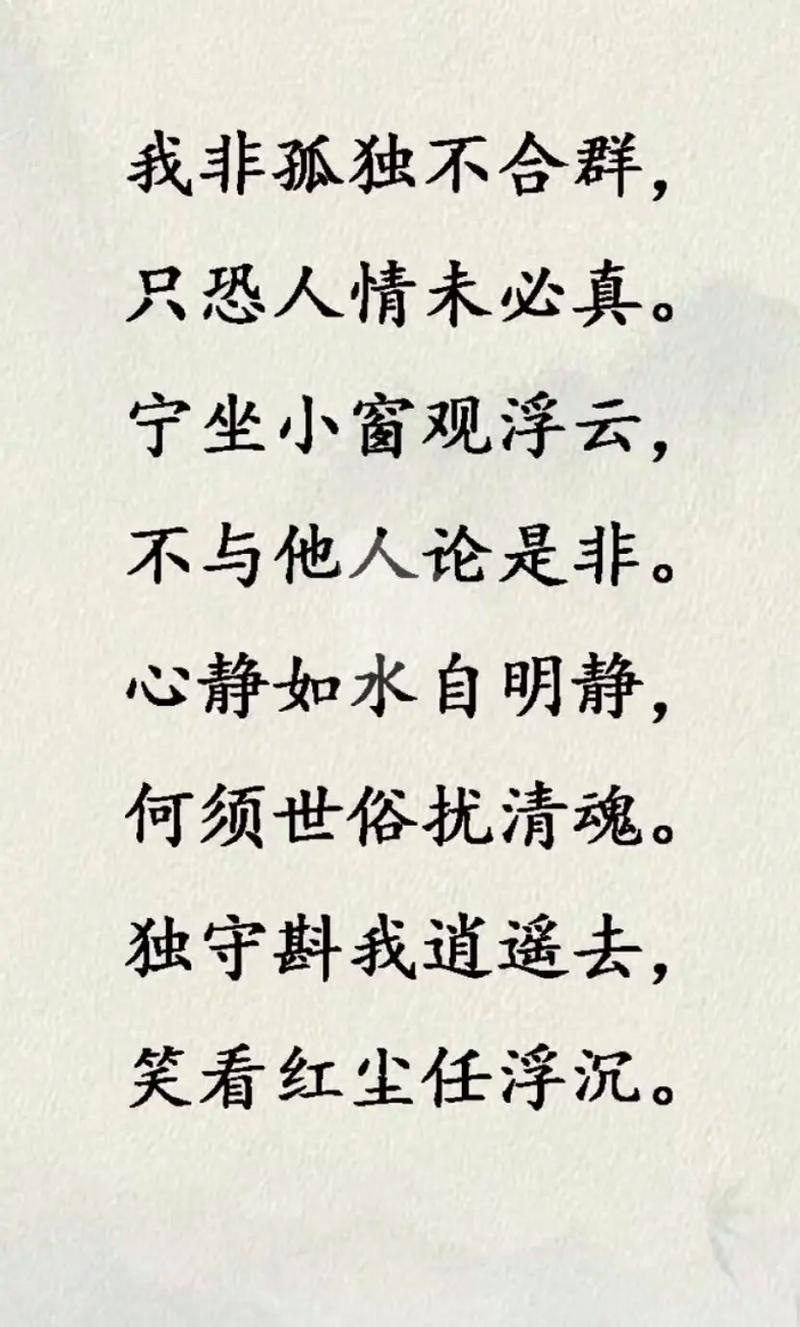 我非孤独不合群，
只恐人情未必真。
宁坐小窗观浮云，
不与他人论是非。
心静如水自明静，
何须世俗扰清魂。
独守斟我逍遥去，
笑看红尘任浮沉。